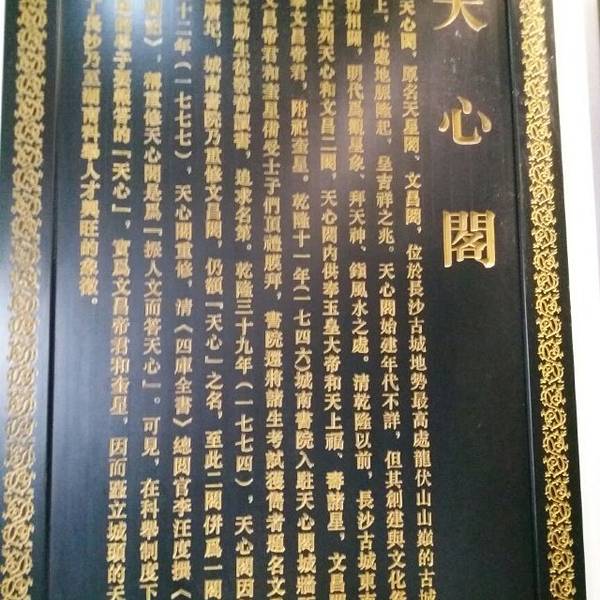 天心閣
天心閣，原名天星閣、文昌閣，位於長沙古城地勢最高處龍伏山山巔的古城
上，此處地脈隆起，呈吉祥之兆。天心閣始建年代不詳，但其創建與文化
相關，明代為觀星象、拜天神、鎮風水之處。清乾隆以前，長沙古城東南
上並列天心和文昌二閣，天心閣內供奉玉皇大帝和天上福、壽諸星，文昌閣
奉文昌帝君，附祀奎星。乾隆十一年（一七四六）城南書院入駐天心閣城牆下
文昌帝君和奎星備受士子們頂禮膜拜，書院還將諸生考試獲雋者題名文昌
勵生徒發奮讀書，追求名第。乾隆三十九年（一七七四），天心閣因
廢圮，城南書院乃重修文昌閣，仍額「天心」之名，至此二閣併為一閣
十二年（一七七七），天心閣重修，清《四庫全書》總閱官李汪度撰《
閣記》，稱重修天心閣是為「振人文而答天心」。可見，在科舉制度下
士子應報答的「天心」，實為文昌帝君和奎星，因而矗立城頭的天
了長沙乃至湖南科舉人才興旺的象徵。